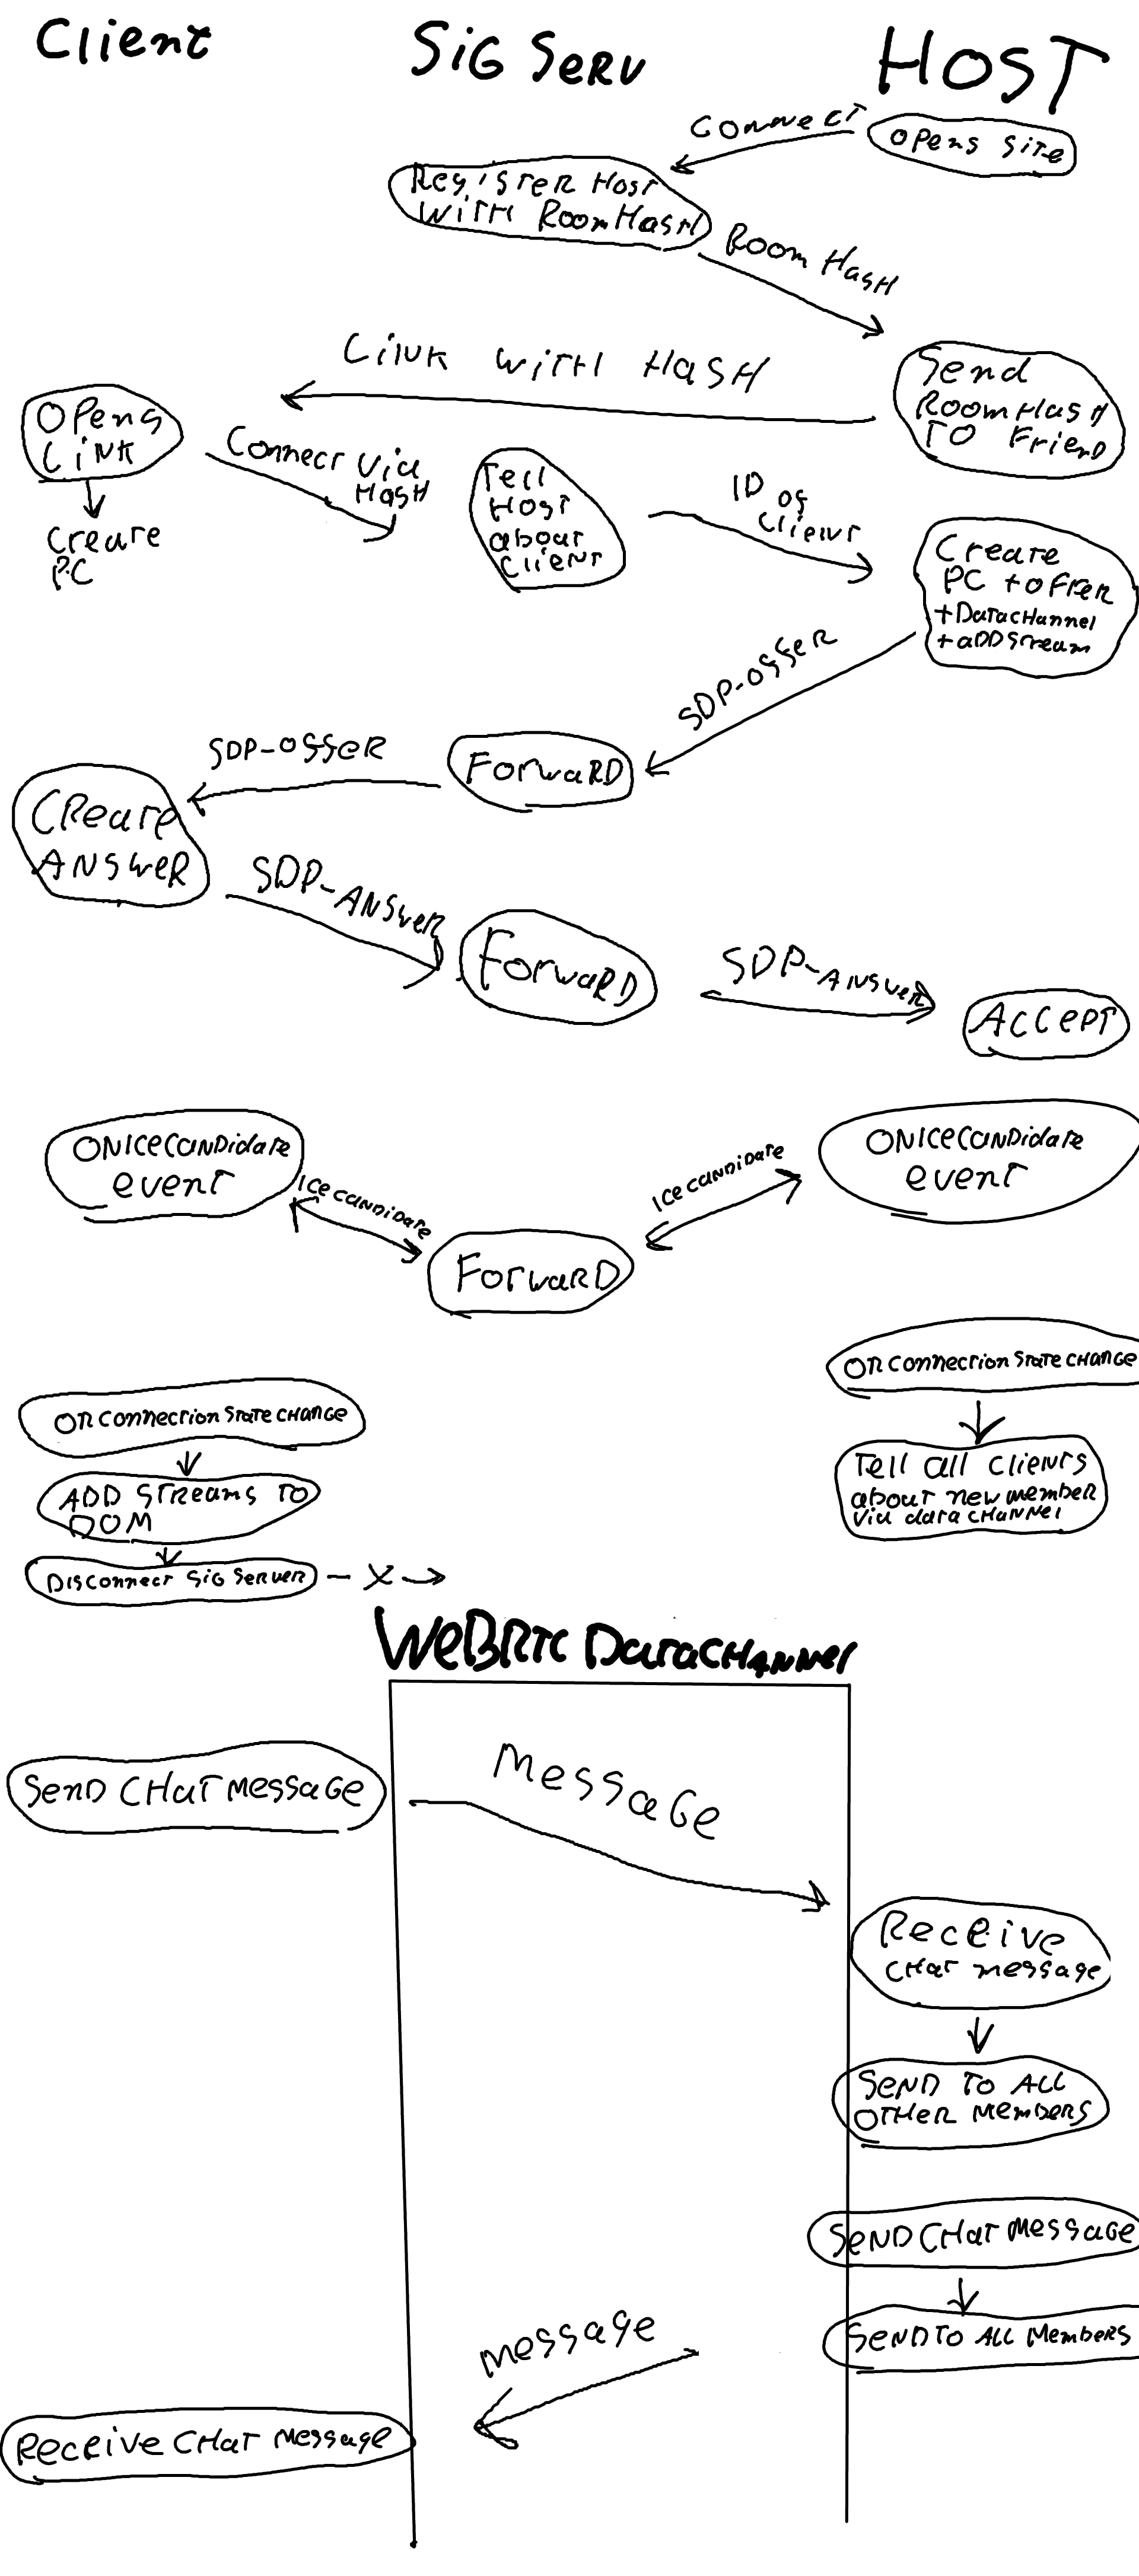 Client
SiG Serv
HOST
connect
opens site
Register Host
with RoomHash
Room Hash
Link with Hash
Send
RoomHash
To Friend
opens
Link
Connect via
Hash
Create
PC
Tell
Host
about
client
ID of
client
Create
PC + offer
+Datachannel
+addstream
SDP-offer
Forward
SDP-offer
Create
Answer
SDP-Answer
Forward
SDP-Answer
Accept
onicecandidate
event
icecandidate
Forward
icecandidate
onicecandidate
event
on connection state change
Tell all clients
about new member
via data channel
on connection state change
Add streams to
DOM
Disconnect Sig Server
- X ->
WebRTC DataChannel
Send Chat message
Message
Receive
chat message
Send to all
other members
Send Chat message
Send to all members
message
Receive Chat message